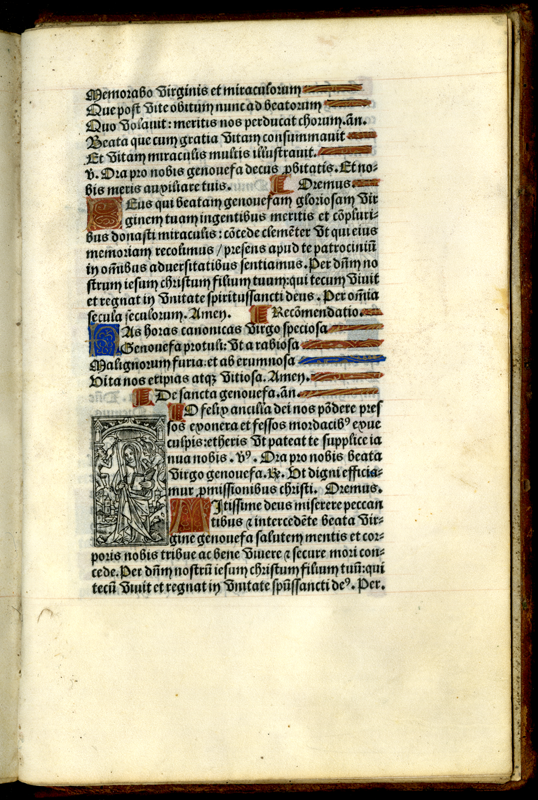 Memorabo virginis et miraculorum
Que post vite obitum nunc ad beatorum
Quo volauit: meritis nos perducat chorum. añ.
Beata que cum gratia vitam consummauit
Et vitam miraculis multis illustrauit.
v. Ora pro nobis genouefa decus ꝓbitatis. Et no-
bis meris auxiliare tuis. Oremus
Deus qui beatam genouefam gloriosam vir
ginem tuam ingentibus meritis et cõpluri-
bus donasti miraculis: cõcede clemẽter vt qui eius
memoriam recolimus / presens apud te patrociniũ
in oñibus aduersitatibus sentiamus. Per dñm no
strum iesum christum filium tuum: qui tecum viuit
et regnat in vnitate spiritussancti deus. Per oñia
secula seculorum. Amen. Recõmendatio.
Has horas canonicas virgo speciosa
Genouefa protuli: vt a rabiosa
Malignorum furia: et ab erumnosa
Vita nos eripias atqꝫ vitiosa. Amen.
De sancta genouefa. añ.
O felix ancilla dei nos põdere pres
sos exonera et fessos mordacibꝰ exue
culpis: etheris vt pateat te supplice ia
nua nobis. vꝰ. Ora pro nobis beata
virgo genouefa. ℞. Vt digni efficia-
mur ꝓmissionibus christi. Oremus.
Mitissime deus miserere peccan
tibus ⁊ intercedẽte beata vir-
gine genouefa salutem mentis et cor-
poris nobis tribue ac bene viuere ⁊ secure mori con-
cede. Per dñm nostrũ iesum christum filium tuũ: qui
tecũ viuit et regnat in vnitate spũssancti deꝰ. Per.